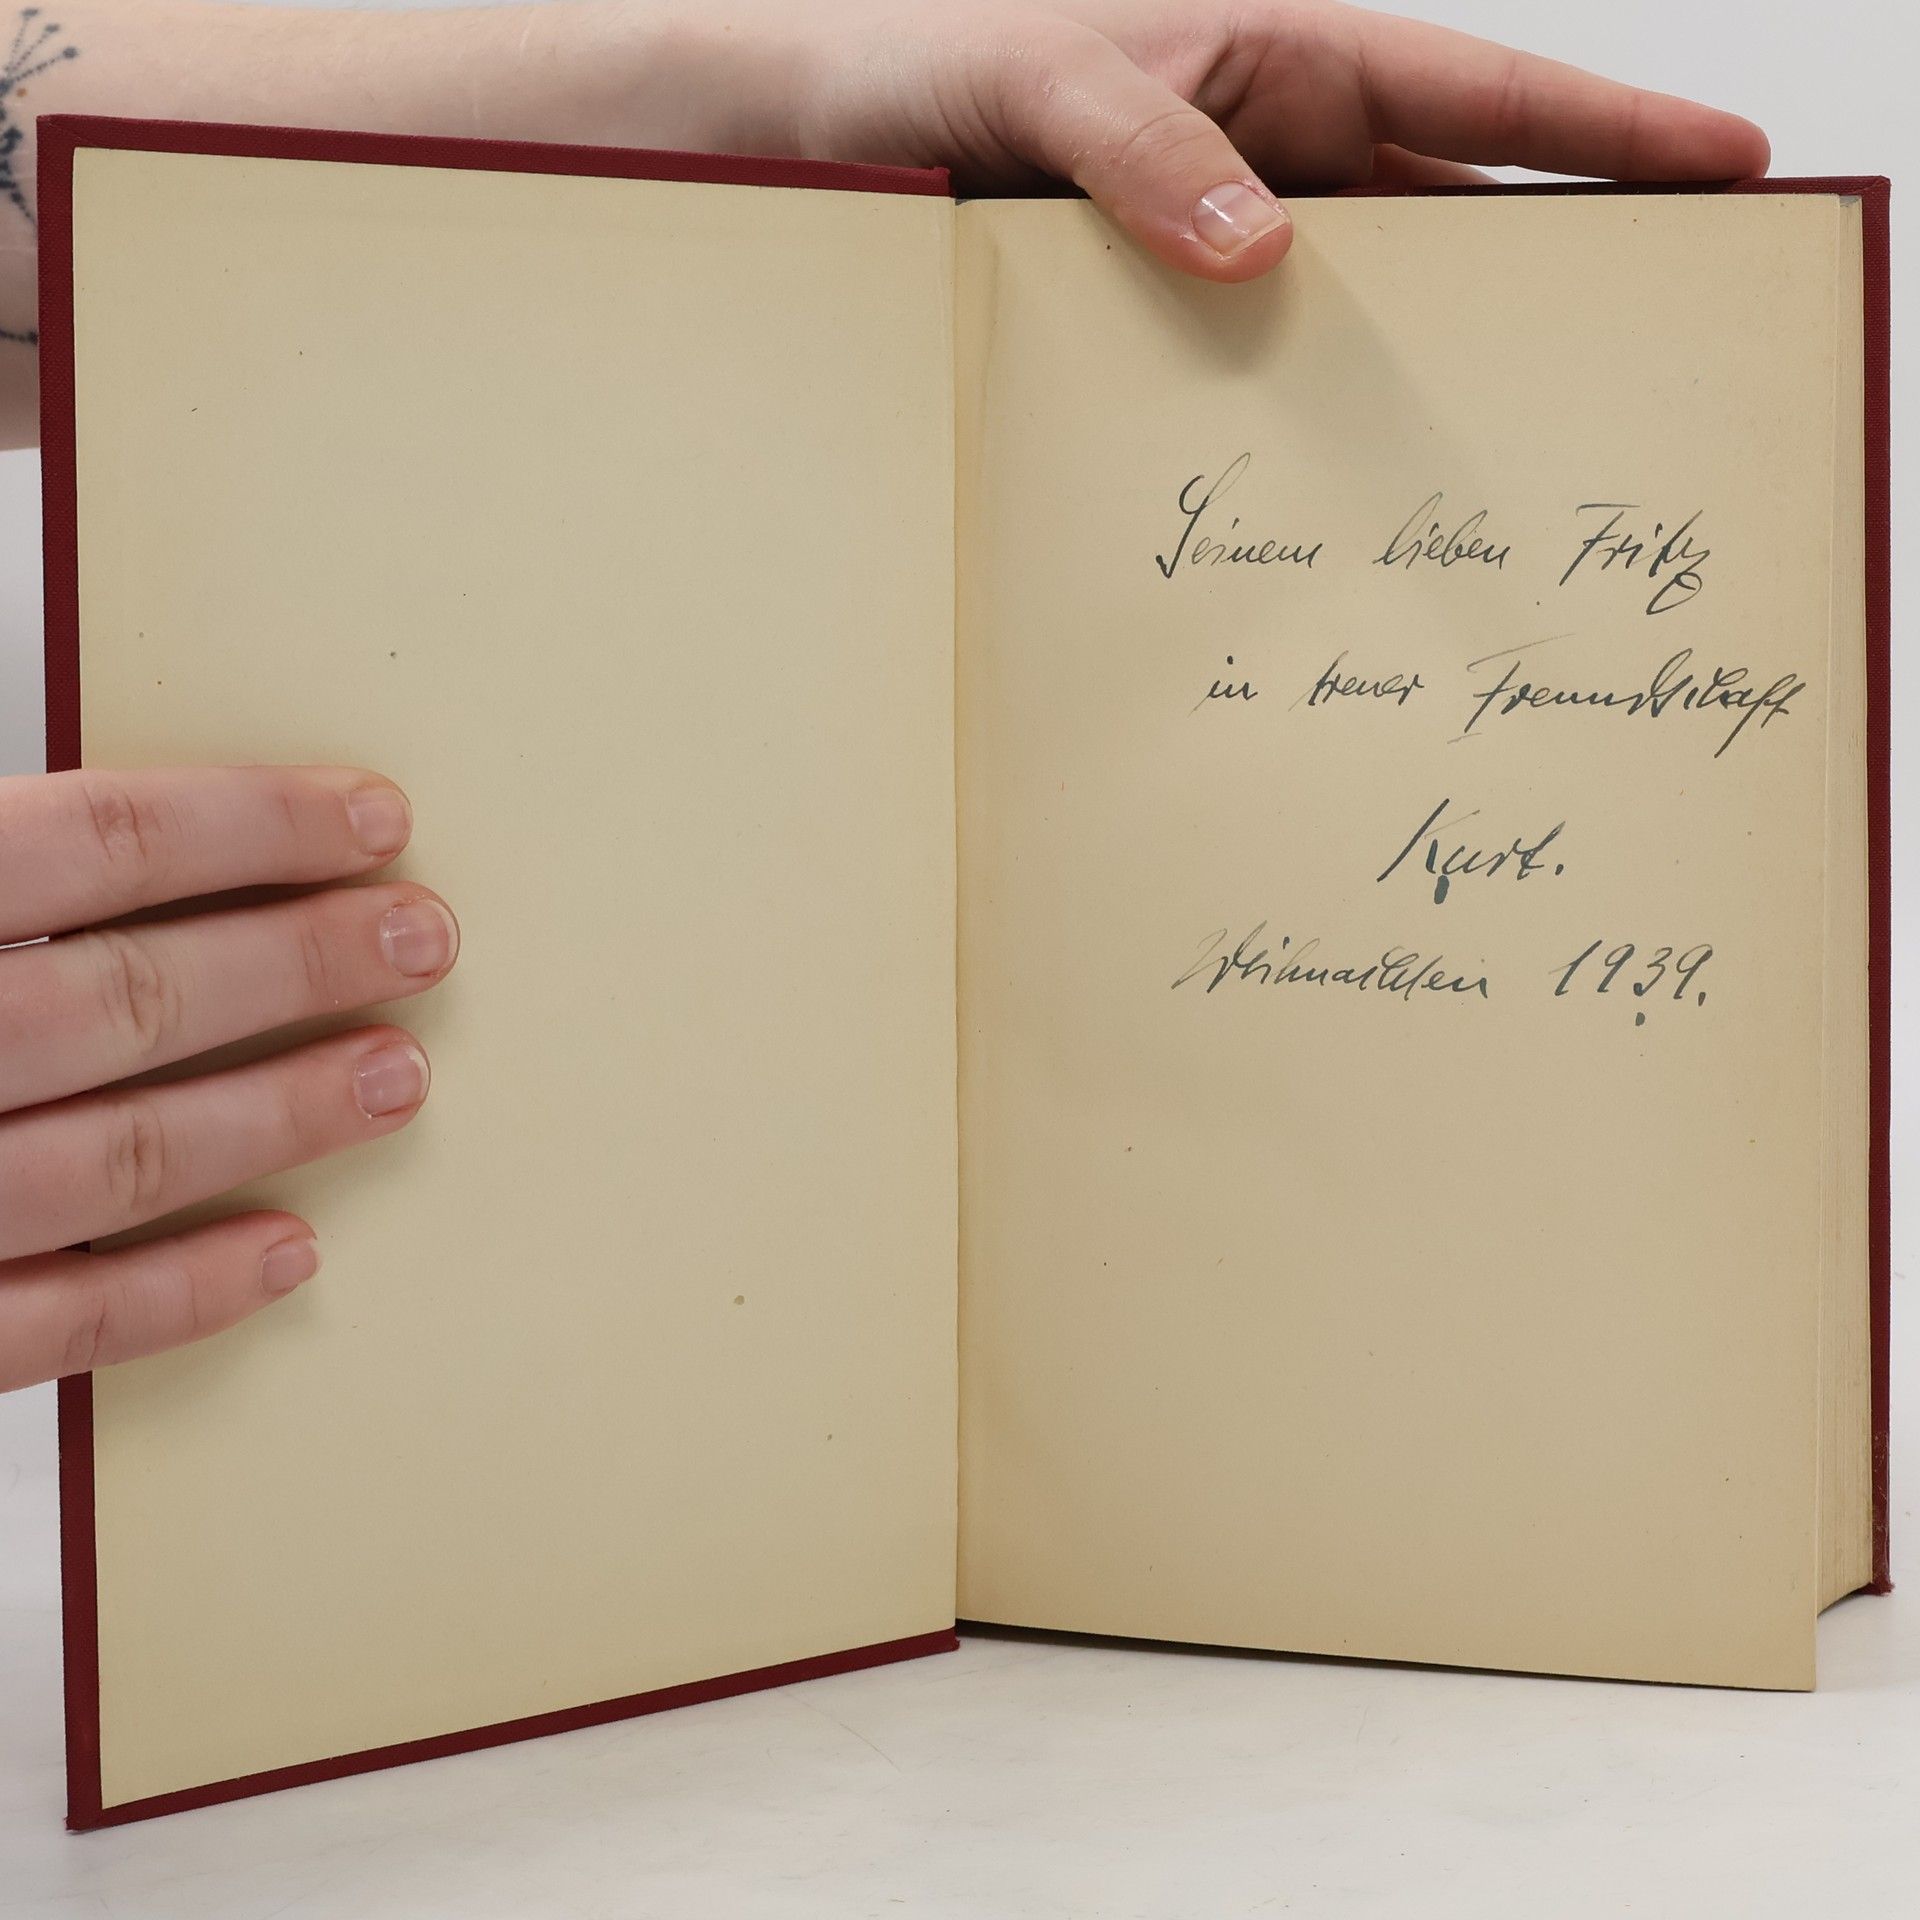 Seinem lieben Fritz
in treuer Freundschaft
Kurt.
Weihnachten 1939.